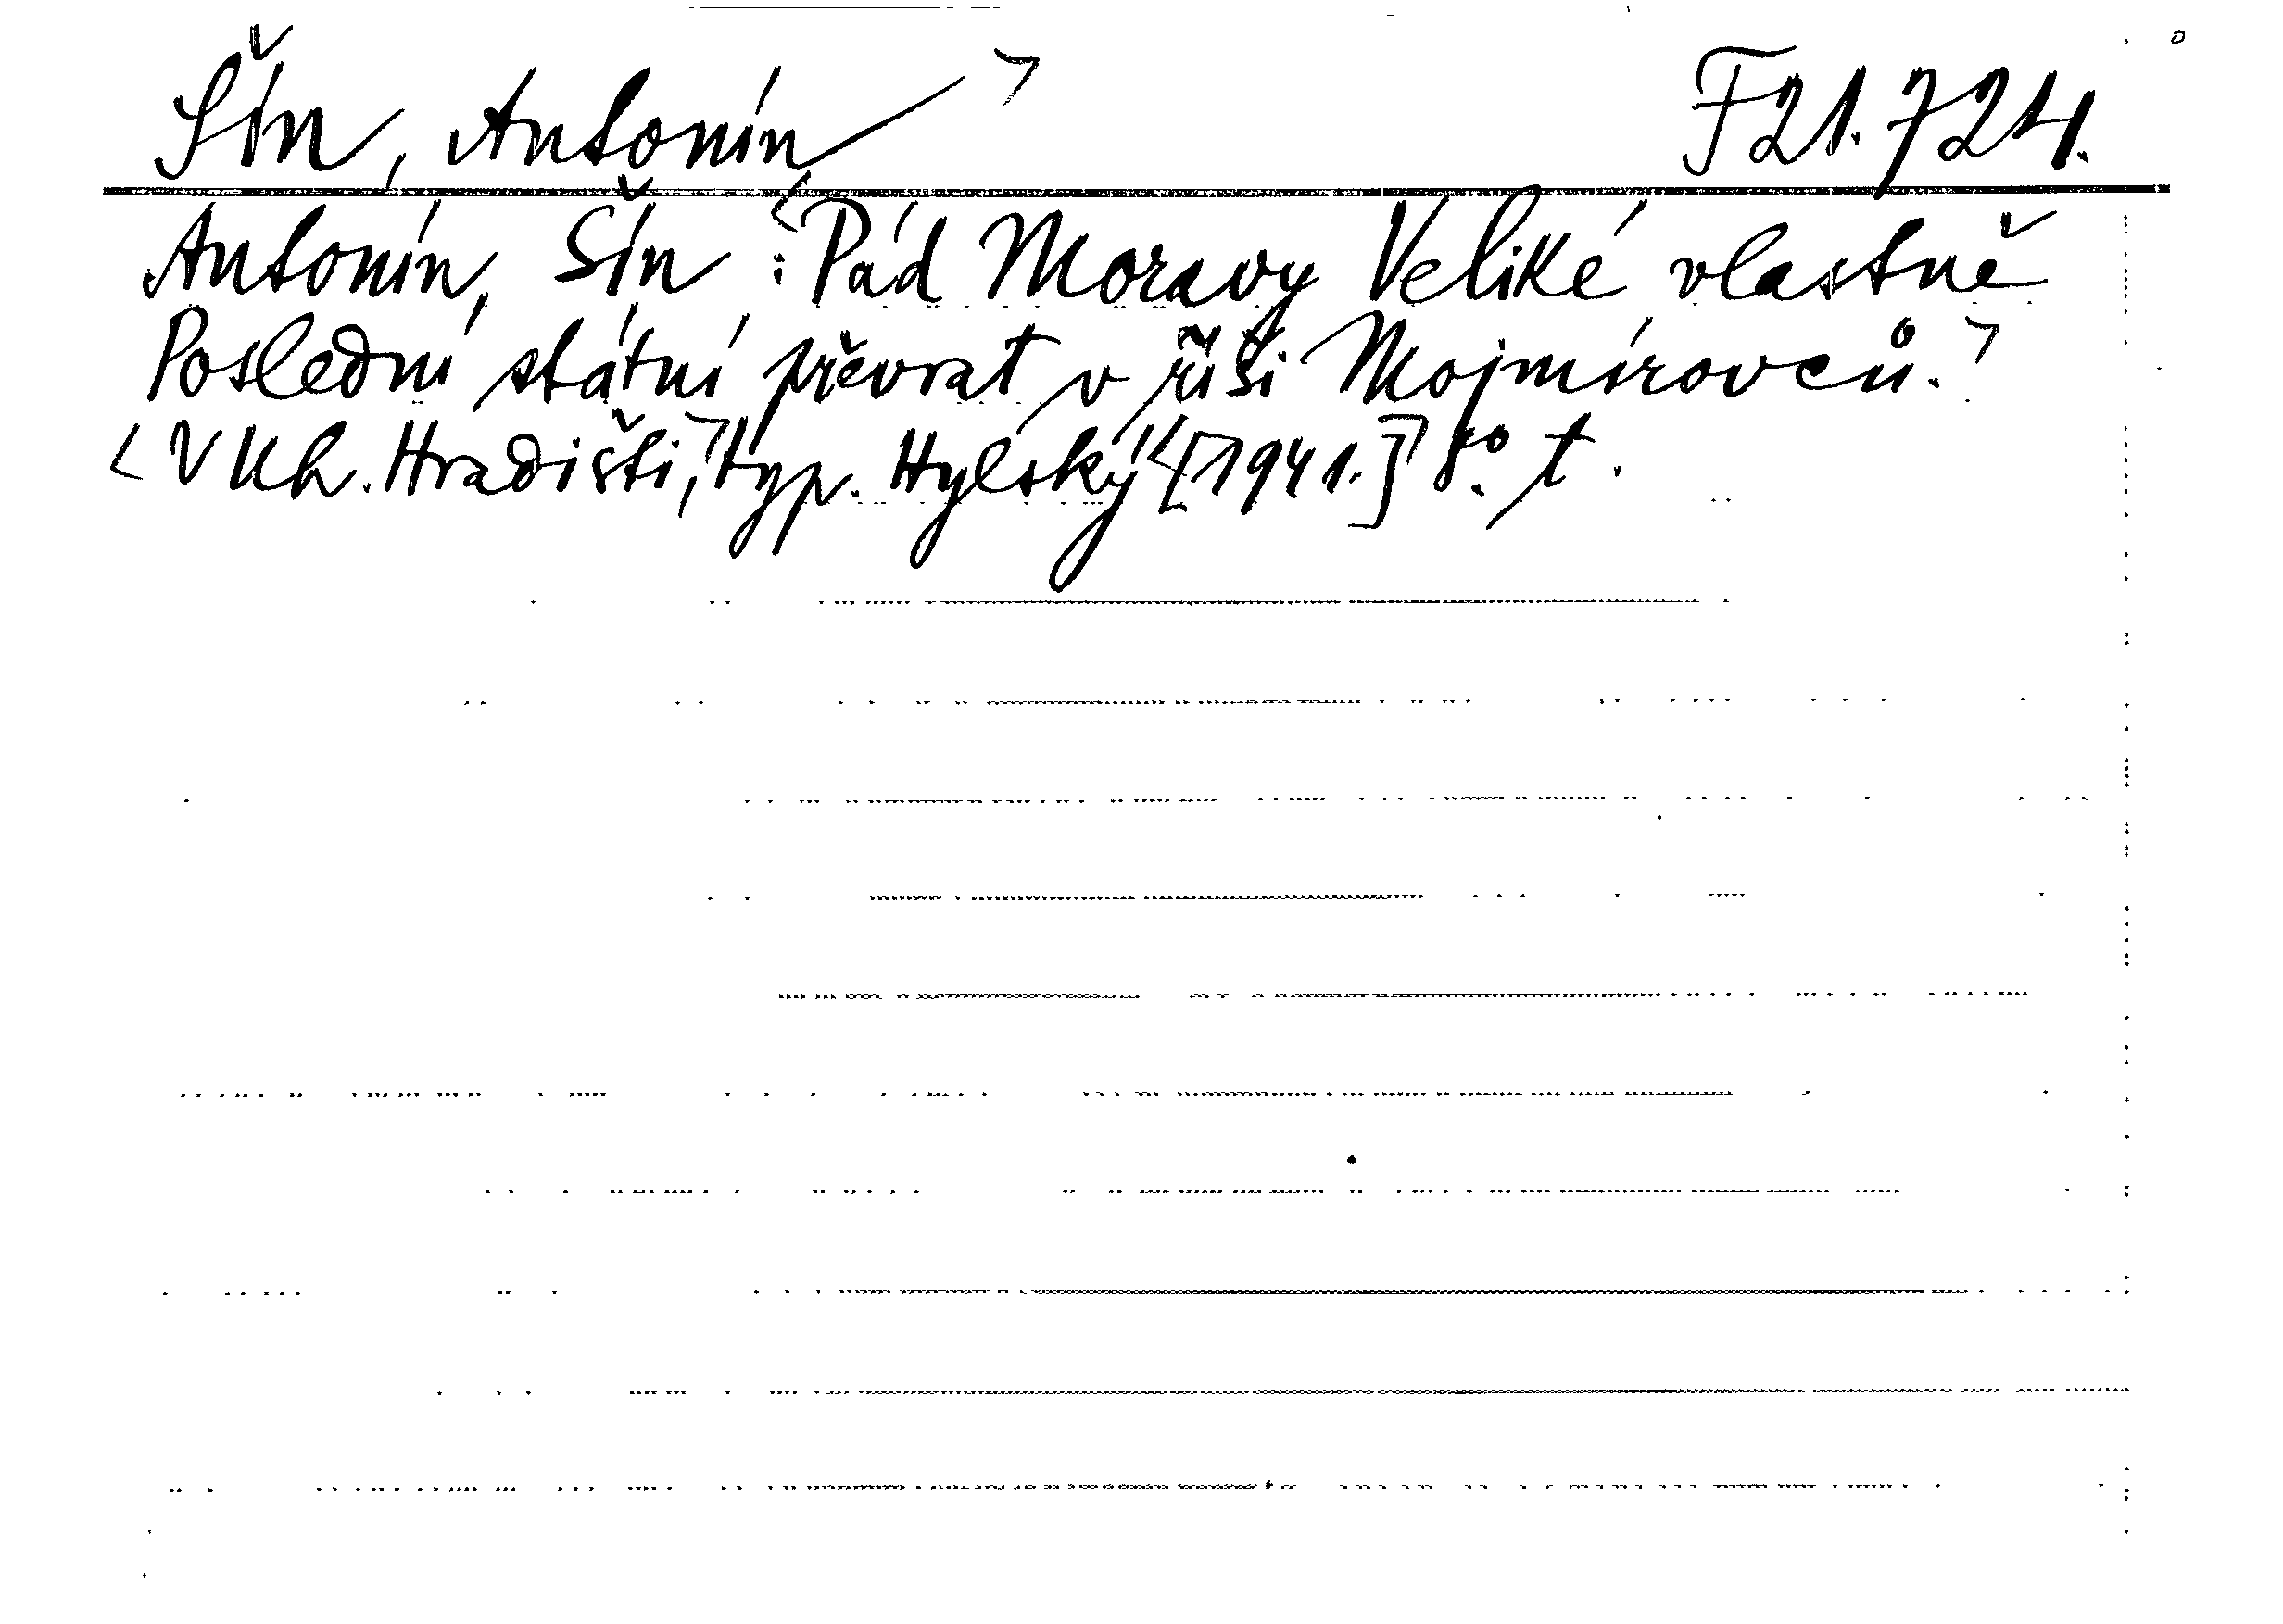 Šín, Antonín F21.724.
Antonín, Šín : Pád Moravy Veliké vlastně
Poslední státní převrat v říši Mojmírovců.
V Uh. Hradišti, typ. Hylský [1941.] 8° t.